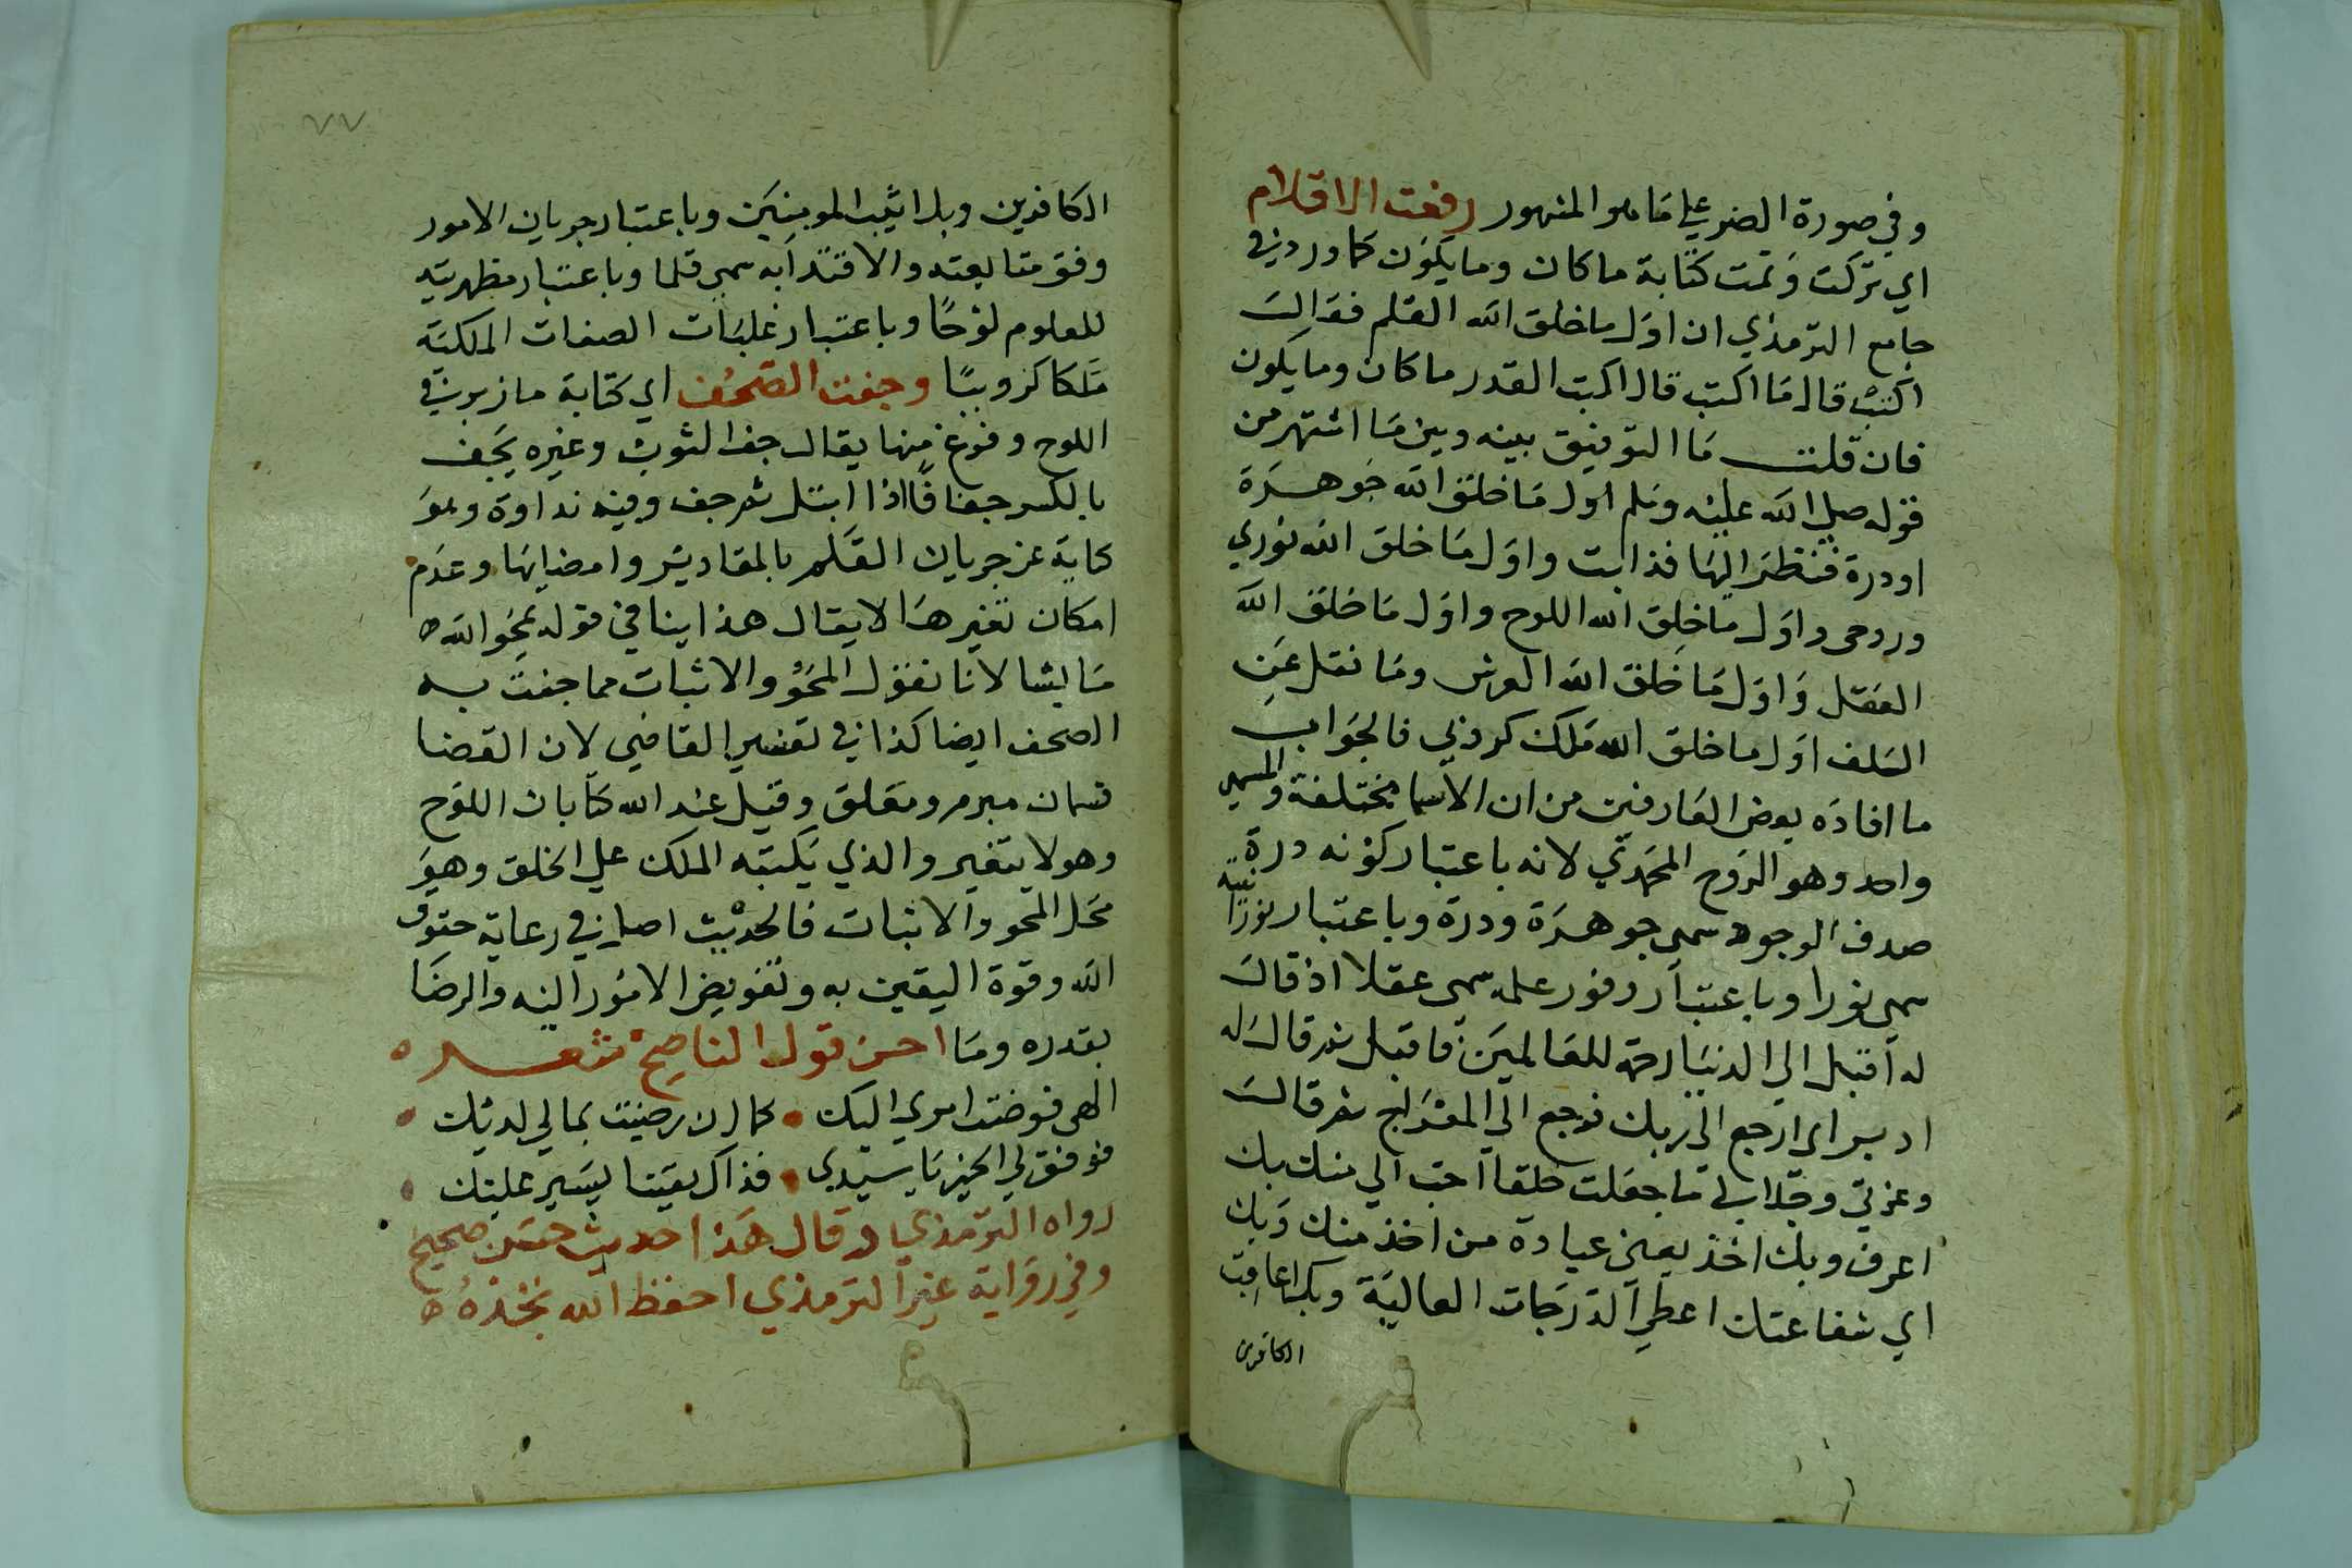 وفي صورة الضر علي ما هو المشهور رفعت الاقلام
اي تركت وتمت كتابة ما كان وما يكون كما ورد في
جامع الترمذي ان اول ما خلق الله القلم فقال
اكتب قال ما اكتب قال اكتب القدر ما كان وما يكون
فان قلت ما التوفيق بينه وبين ما اشتهر من
قوله صلي الله عليه وسلم اول ما خلق الله جوهرة
او درة فنظر اليها فذابت واول ما خلق الله نوري
وروحى واول ما خلق الله اللوح واول ما خلق الله
العقل واول ما خلق الله العرش وما نقل عن
السلف اول ما خلق الله ملك كروبي فالجواب
ما افاده بعض العارفين من ان الاسما مختلفة والمسمي
واحد وهو الروح المحمدي لانه باعتبار كونه درة
صدف الوجود سمى جوهرة ودرة وباعتبار نورانيته
سمى نورا وباعتبار وفور علمه سمى عقلا اذ قال
له اقبل الي الدنيا رحمة للعالمين فاقبل ثم قال له
ادبر اى ارجع الي ربك فرجع الي المعراج ثم قال
وعزتي وجلالي ما جعلت خلقا احب الي منك بك
اعرف وبك اخذ يعني عبادة من اخذ منك وبك
اي شفاعتك اعطي الدرجات العالية وبك اعاقب
الكافرين
٧٧
الكافرين وبك اثيب المومنين وباعتبار جريان الامور
وفق متابعته والاقتدا به سمى قلما وباعتبار مظهريته
للعلوم لوحا وباعتبار غلبات الصفات الملكية
ملكا كروبيا وجفت الصحف اي كتابة ما زبر في
اللوح وفرغ منها يقال جف الثوب وغيره يجف
بالكسر جفافا اذا ابتل ثم جف وفيه نداوة وهو
كناية عن جريان القلم بالمقادير وامضايها وعدم
امكان تغيرها لا يقال هذا ينافي قوله يمحو الله
ما يشا لانا نقول المحو والاثبات مما جفت به
الصحف ايضا كذا في تفسير القاضي لان القضا
قسمان مبرم ومعلق وقيل عند الله كتابان اللوح
وهو لا يتغير والذي يكتبه الملك علي الخلق وهو
محل المحو والاثبات فالحديث اصل في رعاية حقوق
الله وقوة اليقين به وتفويض الامور اليه والرضا
بقدره وما احسن قول الناصح شعر
الهى فوضت امري اليك • كما ان رضيت بما لي لديك •
فوفق لي الخير يا سيدي • فذاك يقينا يسير عليك •
رواه الترمذي وقال هذا حديث حسن صحيح
وفي رواية غير الترمذي احفظ الله تجده